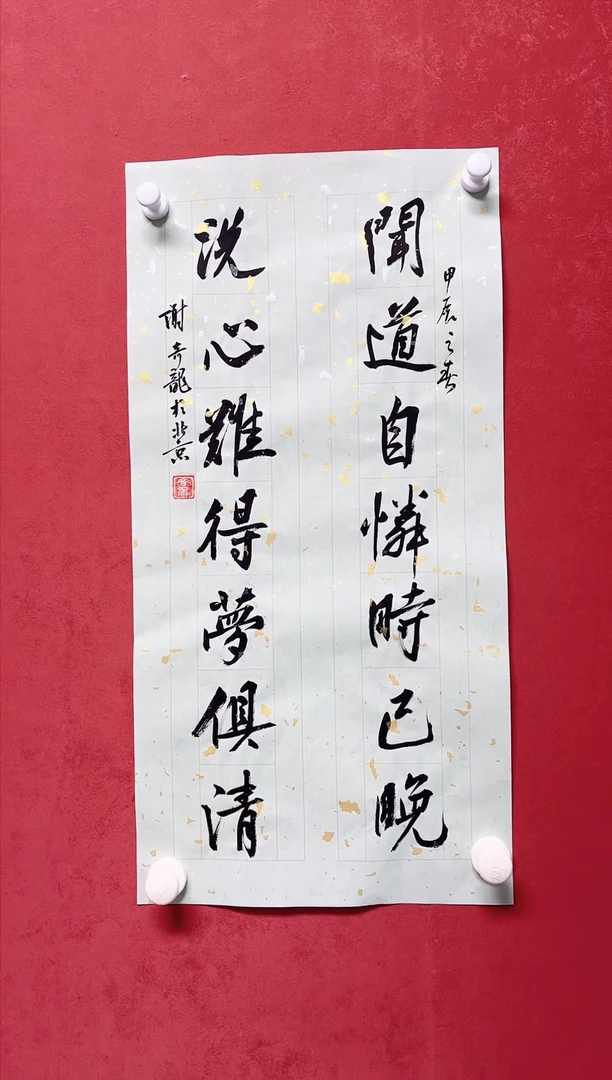 甲辰之春
聞道自憐時已晚
洗心難得夢俱清
謝奇龍於北京